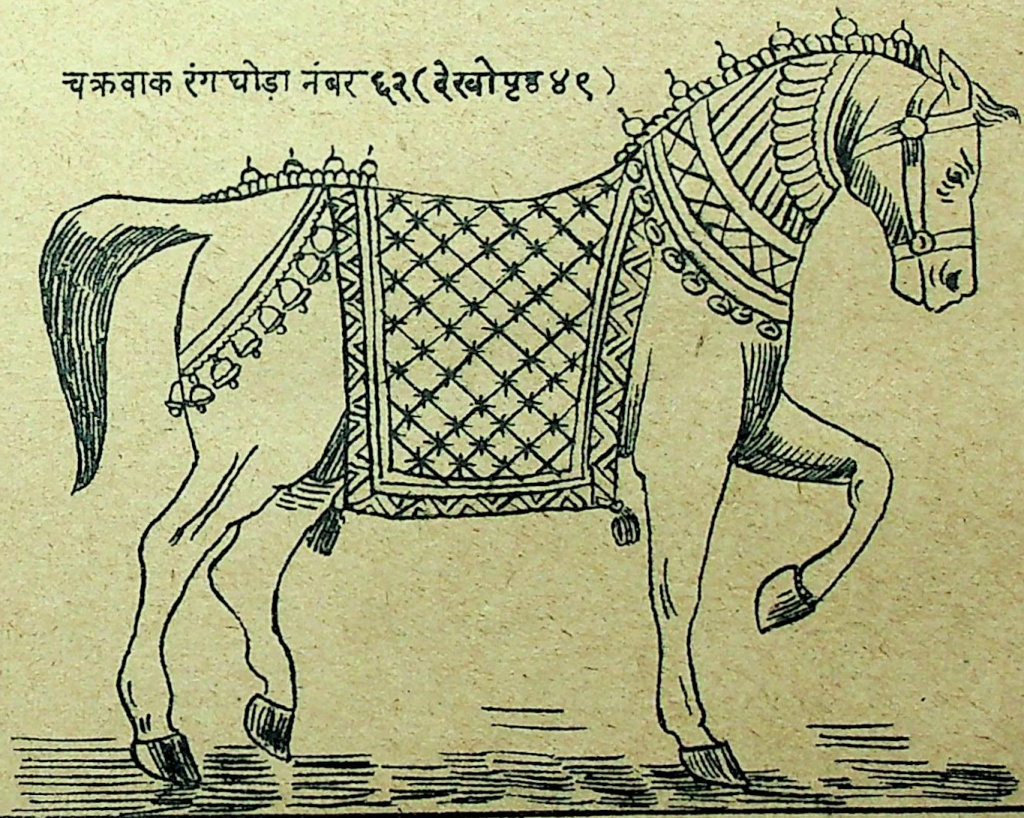 चक्रवाक रंग घोड़ा नंबर ६२ (देखो पृष्ठ ४९)